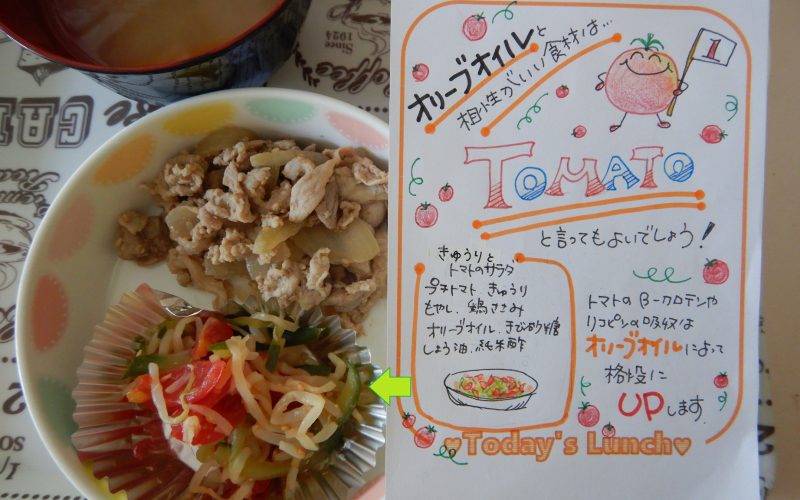 オリーブオイルと
相性がいい食材は…
1
TOMATO
と言ってもよいでしょう!
きゅうりと
トマトのサラダ
プチトマト、きゅうり
もやし、鶏ささみ
オリーブオイル、きび砂糖
しょう油、純米酢
トマトのβ-カロテンや
リコピンの吸収は
オリーブオイルによって
格段に
UPします
♥Today's Lunch♥
Since
1924
Coffee